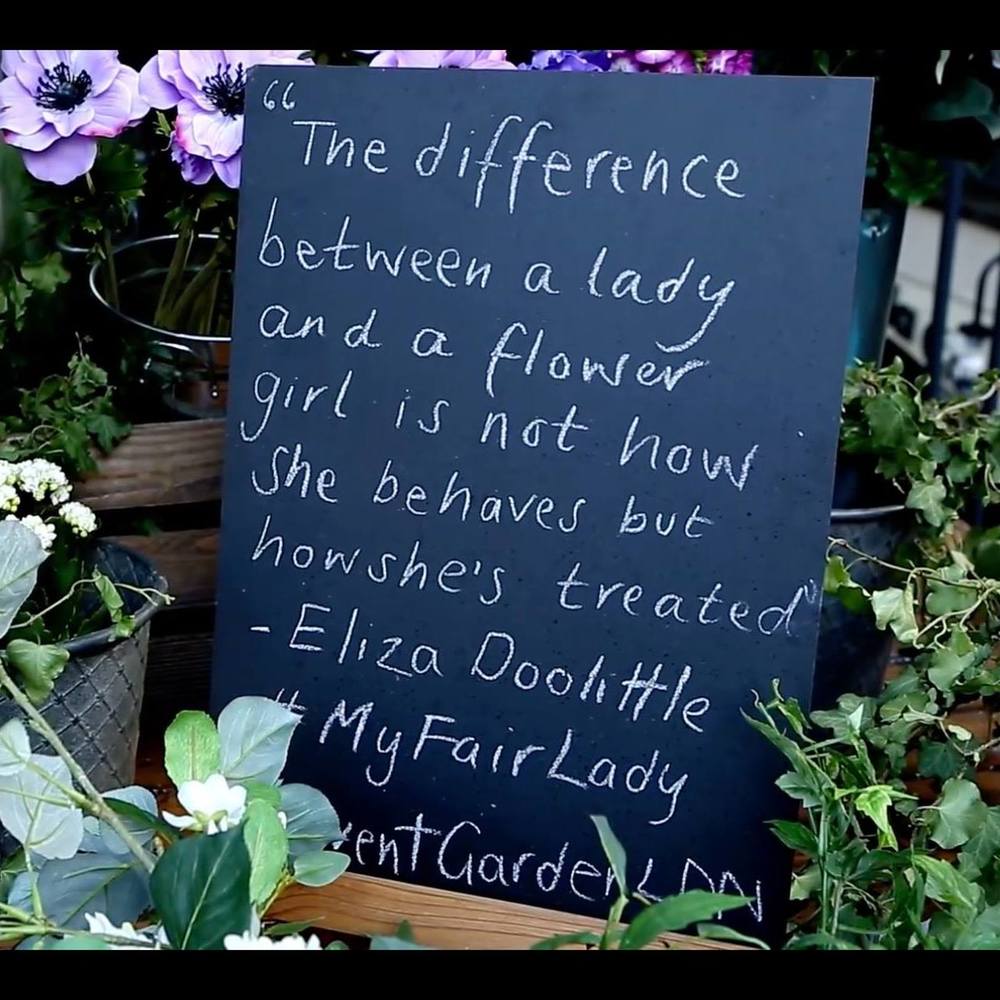 "The difference
between a lady
and a flower
girl is not how
She behaves but
howshe's treated"
- Eliza Doolittle
#MyFairLady
ventGardenLDN